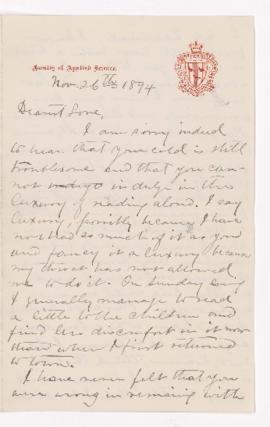 Faculty of Applied Science.
Nov. 26th 1894
Dearest Love,
I am sorry indeed
to hear that your cold is still
troublesome and that you can-
not indulge in the
luxury of reading aloud. I say
luxury, possibly because I have
not had so much of it as you
and fancy it a luxury because
my throat has not allowed
me to do it. On Sunday
I generally manage to read
a little to the children and
find less discomfort in it now
than when I first returned
to town.
I have never felt that you
were wrong in remaining with